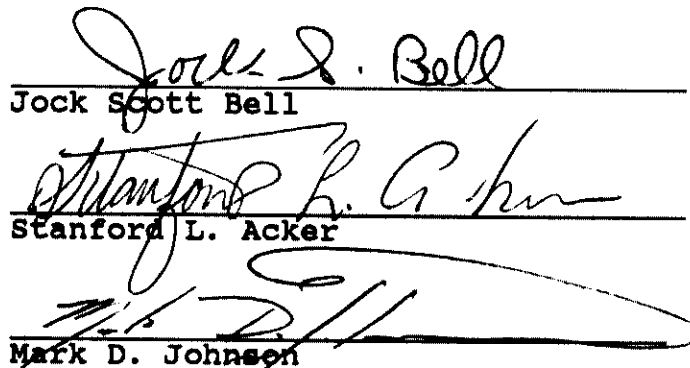 Jock S. Bell
Jock Scott Bell
Stanford L. Acker
Stanford L. Acker
Mark D. Johnson